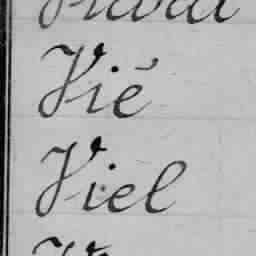 Vié
Viel